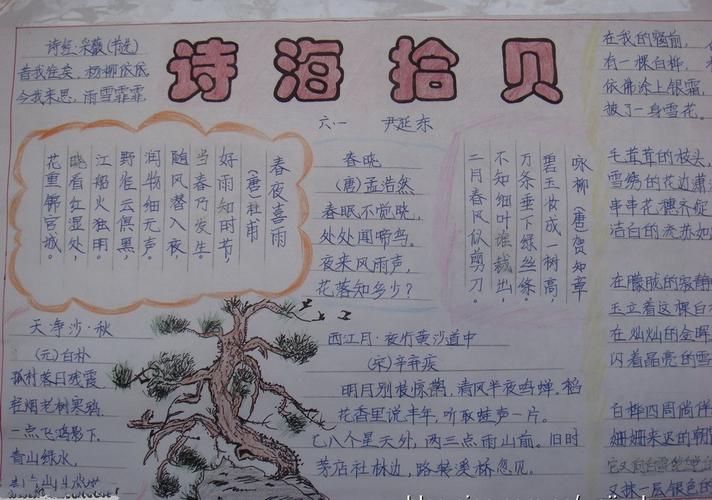 诗海拾贝
六·一 尹延东
诗经·采薇(节选)
昔我往矣，杨柳依依，
今我来思，雨雪霏霏。
春夜喜雨
(唐)杜甫
好雨知时节，
当春乃发生。
随风潜入夜，
润物细无声。
野径云俱黑，
江船火独明。
晓看红湿处，
花重锦官城。
春晓
(唐)孟浩然
春眠不觉晓，
处处闻啼鸟。
夜来风雨声，
花落知多少？
咏柳(唐)贺知章
碧玉妆成一树高，
万条垂下绿丝绦。
不知细叶谁裁出，
二月春风似剪刀。
天净沙·秋
(元)白朴
孤村落日残霞，
轻烟老树寒鸦，
一点飞鸿影下。
青山绿水，
西江月·夜行黄沙道中
(宋)辛弃疾
明月别枝惊鹊，清风半夜鸣蝉。稻
花香里说丰年，听取蛙声一片。
七八个星天外，两三点雨山前。旧时
茅店社林边，路转溪桥忽见。
在我的窗前，
有一棵白桦，
依佛涂上银霜，
披了一身雪花。
毛茸茸的枝头，
雪绣的花边潇
串串花穗齐绽
洁白的流苏如
在朦胧的寂静
玉立着这棵白
在灿灿的金晖
闪着晶亮的雪
白桦四周徜徉
姗姗来迟的朝
它又向白雪皑皑的
又抹一层银色的